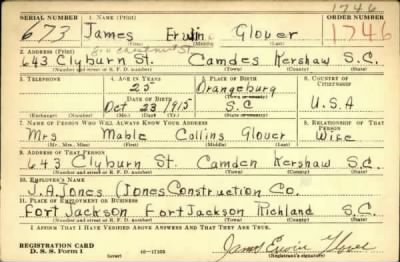 1746
SERIAL NUMBER 1. NAME (Print) ORDER NUMBER
673 James Erwin Glover 1746
(First) (Middle) (Last)
2. ADDRESS (Print)
643 Clyburn St. Camden Kershaw S.C.
(Number and street or R. F. D. number) (Town) (County) (State)
3. TELEPHONE 4. AGE IN YEARS 5. PLACE OF BIRTH 6. COUNTRY OF CITIZENSHIP
25 Orangeburg
(Town or county)
DATE OF BIRTH
Oct 23 1915 S.C U.S.A
(Exchange) (Number) (Mo.) (Day) (Yr.) (State or country)
7. NAME OF PERSON WHO WILL ALWAYS KNOW YOUR ADDRESS 8. RELATIONSHIP OF THAT PERSON
Mrs Mable Collins Glover Wife
(Mr., Mrs., Miss) (First) (Middle) (Last)
9. ADDRESS OF THAT PERSON
643 Clyburn St. Camden Kershaw S.C.
(Number and street or R. F. D. number) (Town) (County) (State)
10. EMPLOYER'S NAME
J.A. Jones (Jones Construction Co.
11. PLACE OF EMPLOYMENT OR BUSINESS
Fort Jackson Fort Jackson Richland S.C.
(Number and street or R. F. D. number) (Town) (County) (State)
I AFFIRM THAT I HAVE VERIFIED ABOVE ANSWERS AND THAT THEY ARE TRUE.
REGISTRATION CARD
D. S. S. Form 1 (over) 16-17105 James Erwin Glover
(Registrant's signature)